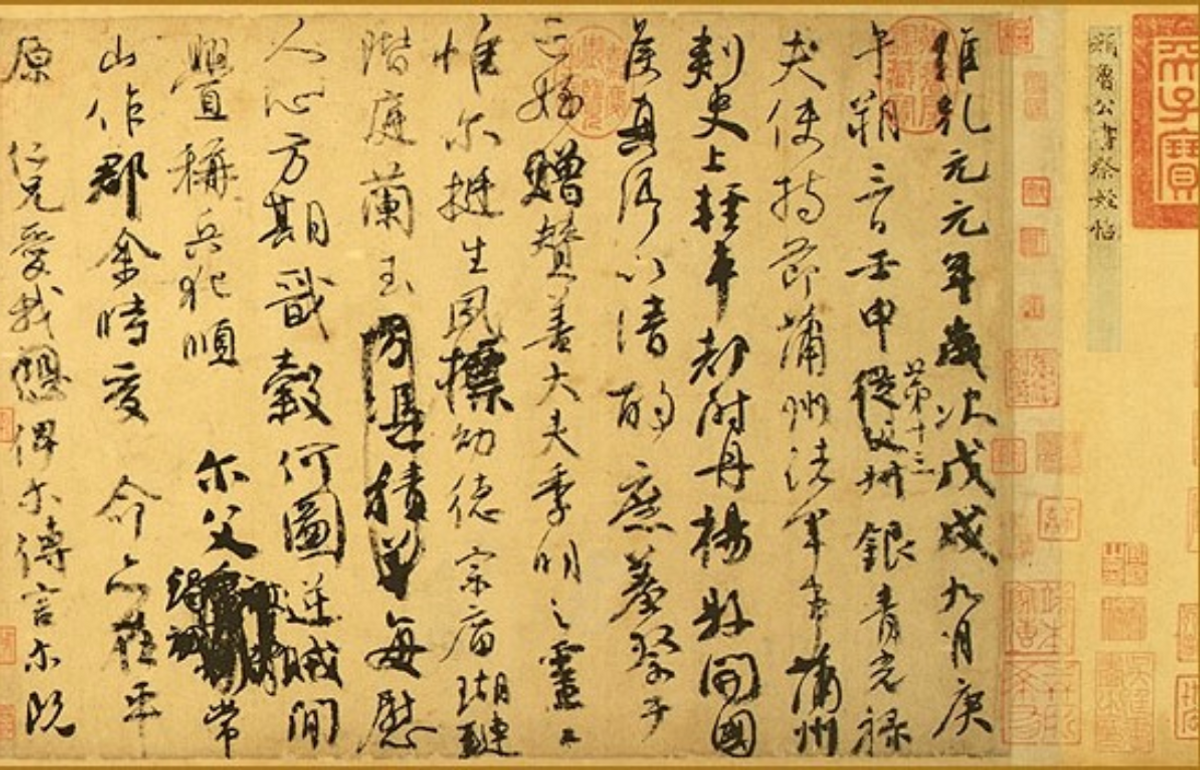 天子寶
顏魯公書祭姪帖
維乾元元年歲次戊戌九月庚
午朔三日壬申第十三從父叔銀青光祿
夫使持節蒲州諸軍事蒲州
刺史上輕車都尉丹楊縣開國
侯真卿以清酌庶羞祭于
亡姪贈贊善大夫季明之靈曰
惟爾挺生夙標幼德宗廟瑚璉
階庭蘭玉方憑積善每慰
人心方期戩穀何圖逆賊閒
舋稱兵犯順爾父竭誠常
山作郡余時受命亦在平
原仁兄愛我恐俾爾傳言爾既